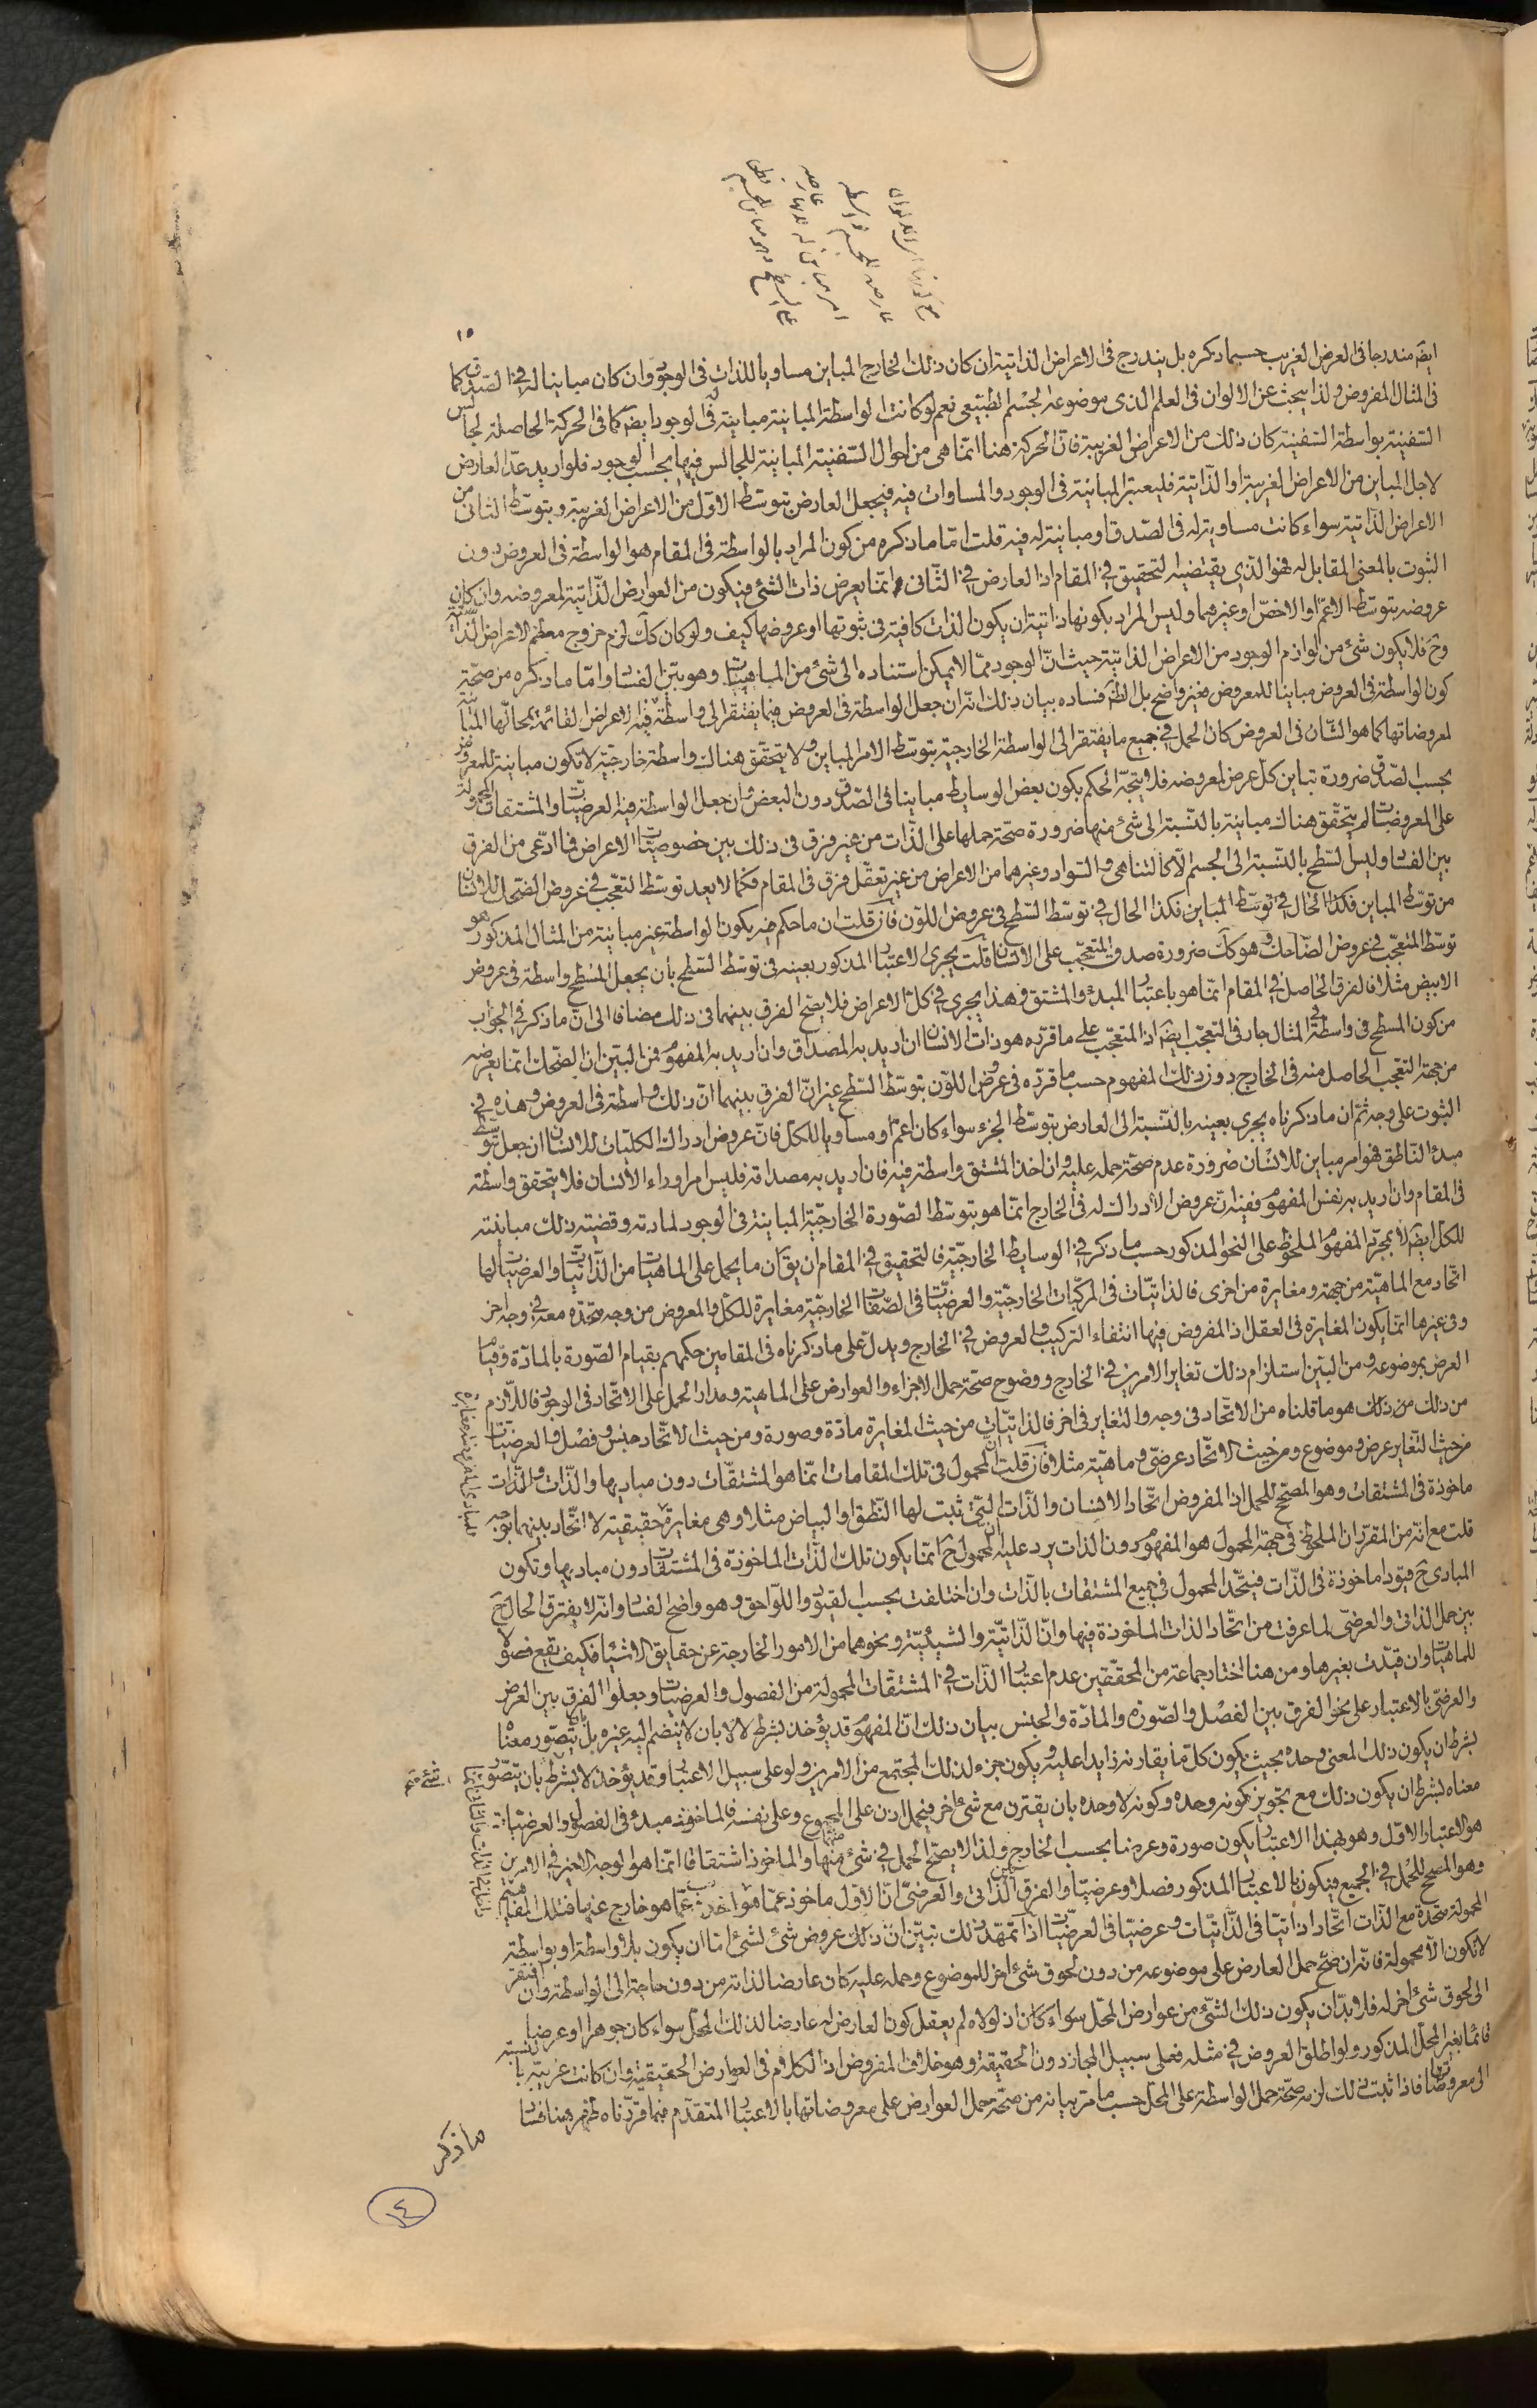 ١٥
ايضا مندرجا فى العرض الغريب حسبما ذكره بل يندرج فى الاعراض الذاتية ان كان ذلك الخارج المباين مساويا للذات فى الوجود وان كان مباينا له فى الصدق كما
فى المثال المفروض ولذا يبحث عن الالوان فى العلم الذى موضوعه الجسم الطبيعى نعم لو كانت الواسطة المباينة مباينة فى الوجود ايضا كما فى الحركة الحاصلة لجالس
السفينة بواسطة السفينة كان ذلك من الاعراض الغريبة فان الحركة هنا انما هى من احوال السفينة المباينة للجالس فيها بحسب الوجود فلو اريد عد العارض
لاجل المباين من الاعراض الغريبة او الذاتية فليعتبر المباينة فى الوجود والمساوات فيه فيجعل العارض بتوسط الاول من الاعراض الغريبة وبتوسط الثانى من
الاعراض الذاتية سواء كانت مساوية له فى الصدق او مباينة له فيه قلت اما ما ذكره من كون المراد بالواسطة فى المقام هو الواسطة فى العروض دون
الثبوت بالمعنى المقابل له فهو الذى يقتضيه التحقيق فى المقام اذ العارض فى الثانى انما يعرض ذات الشئ فيكون من العوارض الذاتية لمعروضه وان كان
عروضه بتوسط الاعم او الاخص او غيرهما وليس المراد بكونها ذاتية ان يكون الذات كافية فى ثبوتها او عروضها كيف ولو كان كك لزم خروج معظم الاعراض الذاتية
وح فلا يكون شئ من لوازم الوجود من الاعراض الذاتية حيث ان الوجود مما لا يمكن استناده الى شئ من الماهيات وهو بين الفساد واما ما ذكره من صحة
كون الواسطة فى العروض مباينا للمعروض فغير واضح بل الظ فساده بيان ذلك انه ان جعل الواسطة فى العروض فيما يفتقر الى واسطة فيه الاعراض القائمة بمحالها المباينة
لمعروضاتها كما هو الشان فى العروض كان الحمل فى جميع ما يفتقر الى الواسطة الخارجية بتوسط الامر المباين ولا يتحقق هناك واسطة خارجية لا تكون مباينة للمعروض
بحسب الصدق ضرورة تباين كل عرض لمعروضه فلا يتجه الحكم بكون بعض الوسايط مباينا فى الصدق دون البعض وان جعل الواسطة فيه العرضيات والمشتقات المحمولة
على المعروضات لم يتحقق هناك مباينة بالنسبة الى شئ منها ضرورة صحة حملها على الذات من غير فرق فى ذلك بين خصوصيات الاعراض فما ادعى من الفرق
بين الفساد وليس السطح بالنسبة الى الجسم الا كالتناهى والسواد وغيرهما من الاعراض من غير تعقل فرق فى المقام فكما لا يعد توسط التعجب فى عروض الضحك للانسان
من توسط المباين فكذا الحال فى توسط المباين فكذا الحال فى توسط السطح فى عروض اللون فان قلت ان ما حكم فيه بكون الواسطة غير مباينة من المثال المذكور هو
توسط المتعجب فى عروض الضاحك وهو كك ضرورة صدق المتعجب على الانسان قلت يجرى الاعتبار المذكور بعينه فى توسط السطح بان يجعل المسطح واسطة فى عروض
الابيض مثلا فالفرق الحاصل فى المقام انما هو باعتبار المبدء والمشتق وهذا يجرى فى كل الاعراض فلا يتضح الفرق بينهما فى ذلك مضافا الى ان ما ذكر فى الجواب
من كون المسطح فى واسطة المثال جار فى التعجب ايضا اذ المتعجب على ما قرره هو ذات الانسان ان اريد به المصداق وان اريد به المفهوم فمن البين ان الضحك انما يعرضه
من جهة التعجب الحاصل منه فى الخارج دون ذلك المفهوم حسب ما قرره فى عروض اللون بتوسط السطح غير ان الفرق بينهما ان ذلك واسطة فى العروض وهذه فى
الثبوت على وجه ثم ان ما ذكرناه يجرى بعينه بالنسبة الى العارض بتوسط الجزء سواء كان اعم او مساويا للكل فان عروض ادراك الكليات للانسان ان جعل بتوسط
مبدء الناطق فهو امر مباين للانسان ضرورة عدم صحة حمله عليه وان اخذ المشتق واسطة فيه فان اريد به مصداقه فليس امرا وراء الانسان فلا يتحقق واسطة
فى المقام وان اريد به نفس المفهوم ففيه ان عروض الادراك له فى الخارج انما هو بتوسط الصورة الخارجية المباينة فى الوجود لمادته وقضية ذلك مباينته
للكل ايضا لا بمجرد المفهوم الملحوظ على النحو المذكور حسب ما ذكر فى الوسايط الخارجية فالتحقيق فى المقام ان يق ان ما يحمل على الماهيات من الذاتيات والعرضيات لها
اتحاد مع الماهية من جهة ومغايرة من اخرى فالذاتيات فى المركبات الخارجية والعرضيات فى الصفات الخارجية مغايرة للكل والمعروض من وجه متحدة معه فى وجه اخر
وفى غيرها انما يكون المغايرة فى العقل اذ المفروض فيها انتفاء التركيب والعروض فى الخارج ويدل على ما ذكرناه فى المقامين حكمهم بقيام الصورة بالمادة وقيام
العرض بموضوعه ومن البين استلزام ذلك تغاير الامرين فى الخارج ووضوح صحة حمل الاجزاء والعوارض على الماهية ومدار الحمل على الاتحاد فى الوجود فاللازم
من ذلك هو ما قلناه من الاتحاد فى وجه والتغاير فى اخر فالذاتيات من حيث المغايرة مادة وصورة ومن حيث الاتحاد جنس وفصل والعرضيات
من حيث التغاير عرض وموضوع ومن حيث الاتحاد عرضى وماهية مثلا فان قلت ان المحمول فى تلك المقامات انما هو المشتقات دون مباديها والذات
ماخوذة فى المشتقات وهو المصحح للحمل اذ المفروض اتحاد الانسان والذات التى ثبت لها النطق او البياض مثلا وهى مغايرة حقيقية لا اتحاد بينهما بوجه
قلت مع انه من المقرر ان الملحوظ فى جهة المحمول هو المفهوم دون الذات يرد عليه ان المحمول ح انما يكون تلك الذات الماخوذة فى المشتقات دون مباديها وتكون
المبادى ح قيودا ماخوذة فى الذات فيتحد المحمول فى جميع المشتقات بالذات وان اختلفت بحسب القيود واللواحق وهو واضح الفساد وانه لا يفترق الحال ح
بين حمل الذاتى والعرضى لما عرفت من اتحاد الذات الماخوذة فيها وان الذاتية والشيئية ونحوهما من الامور الخارجة عن حقايق الاشياء فكيف يقع فصولا
للماهيات وان قيدت بغيرها ومن هنا اختار جماعة من المحققين عدم اعتبار الذات فى المشتقات المحمولة من الفصول والعرضيات وجعلوا الفرق بين العرض
والعرضى بالاعتبار على نحو الفرق بين الفصل والصورة والمادة والجنس بيان ذلك ان المفهوم قد يؤخذ بشرط لا لا بان لا ينضم اليه غيره بل بان يتصور معناه
بشرط ان يكون ذلك المعنى وحده بحيث يكون كل ما يقارنه زايدا عليه ويكون جزء لذلك المجتمع من الامرين ولو على سبيل الاعتبار وقد يؤخذ لا بشرط بان يتصور
معناه بشرط ان يكون ذلك مع تجويز كونه وحده وكونه لا وحده بان يقترن مع شئ اخر فيحمل اذن على المجموع وعلى نفسه فالماخوذ مبدء فى الفصول والعرضيات
هو الاعتبار الاول وهو بهذا الاعتبار يكون صورة وعرضا بحسب الخارج ولذا لا يصح الحمل فى شئ منهما والماخوذ اشتقاقا انما هو الوجه الاخير فى الامرين
وهو المصحح للحمل فى الجميع فيكون بالاعتبار المذكور فصلا وعرضيا والفرق بين الذاتى والعرضى ان الاول ماخوذ عما هو داخل فى الذات والثانى عما هو خارج عنها فتلك المفاهيم
المحمولة متحدة مع الذات اتحادا ذاتيا فى الذاتيات وعرضيا فى العرضيات اذا تمهد ذلك تبين ان ذلك عروض شئ لشئ اما ان يكون بلا واسطة او بواسطة
لا تكون الا محمولة فانه ان صح حمل العارض على موضوعه من دون لحوق شئ اخر للموضوع وحمله عليه كان عارضا لذاته من دون حاجة الى الواسطة وان افتقر
الى لحوق شئ اخر له فلا بد ان يكون ذلك الشئ من عوارض المحل سواء كان اذ لولاه لم يعقل كون العارض له عارضا لذلك المحل سواء كان جوهرا او عرضيا
قائما بغير المحل المذكور ولو اطلق العروض فى مثله فعلى سبيل المجاز دون الحقيقة وهو خلاف المفروض اذ الكلام فى العوارض الحقيقية وان كانت غريبة بالنسبة
الى معروضها فاذا ثبت ذلك لزمه صحة حمل الواسطة على المحل حسب ما مر بيانه من صحة حمل العوارض على معروضاتها بالاعتبار المتقدم فيما قررناه ظهر هنا فساد
ما ذكر
١٤